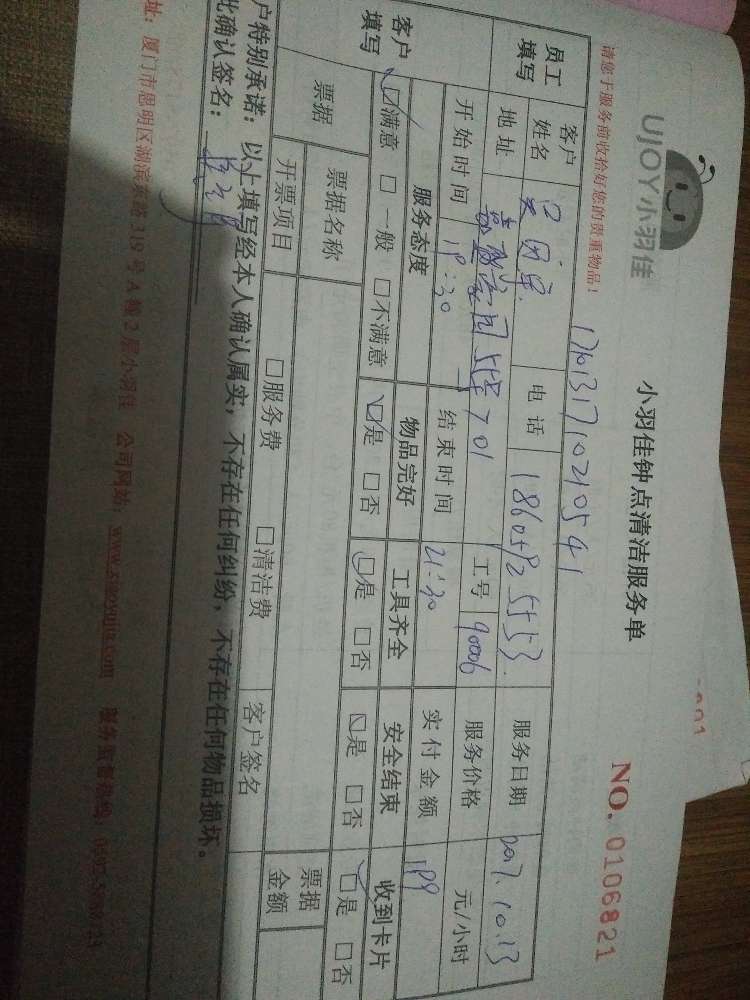 UJOY小羽佳
小羽佳钟点清洁服务单
NO. 0106821
请您于服务前收拾好您的贵重物品！
员工填写
客户姓名
电话
18605925553
服务日期
2017.10.13
地址
55号701
工号
90006
服务价格
元/小时
开始时间
19:30
结束时间
21:30
实付金额
199
客户填写
服务态度
物品完好
工具齐全
安全结束
收到卡片
☑满意 □一般 □不满意
☑是 □否
☑是 □否
☑是 □否
☑是 □否
票据
票据名称
□服务费 □清洁费
票据金额
开票项目
客户签名
户特别承诺：以上填写经本人确认属实，不存在任何纠纷，不存在任何物品损坏。
此确认签名：
址：厦门市思明区湖滨东路319号A幢2层小羽佳 公司网站：www.xiaoyujia.com 服务监督热线：